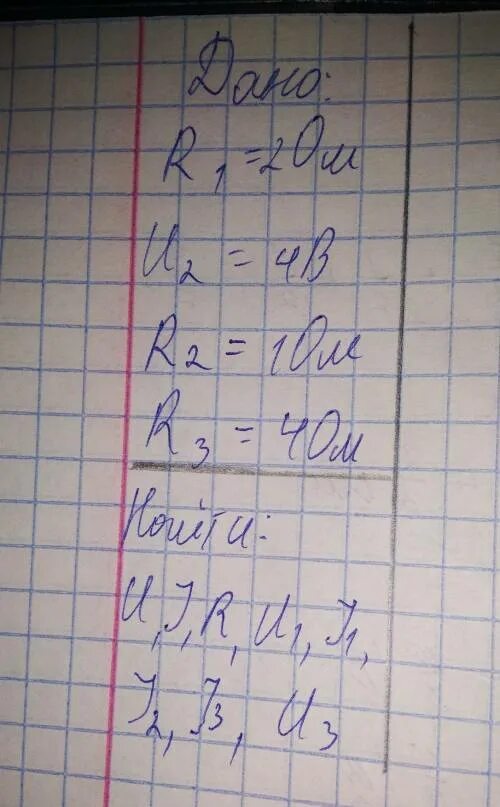 Дано:
R₁ = 2 Ом
U₂ = 4В
R₂ = 1 Ом
R₃ = 4 Ом
Найти:
U, J, R, U₁, J₁,
J₂, J₃, U₃